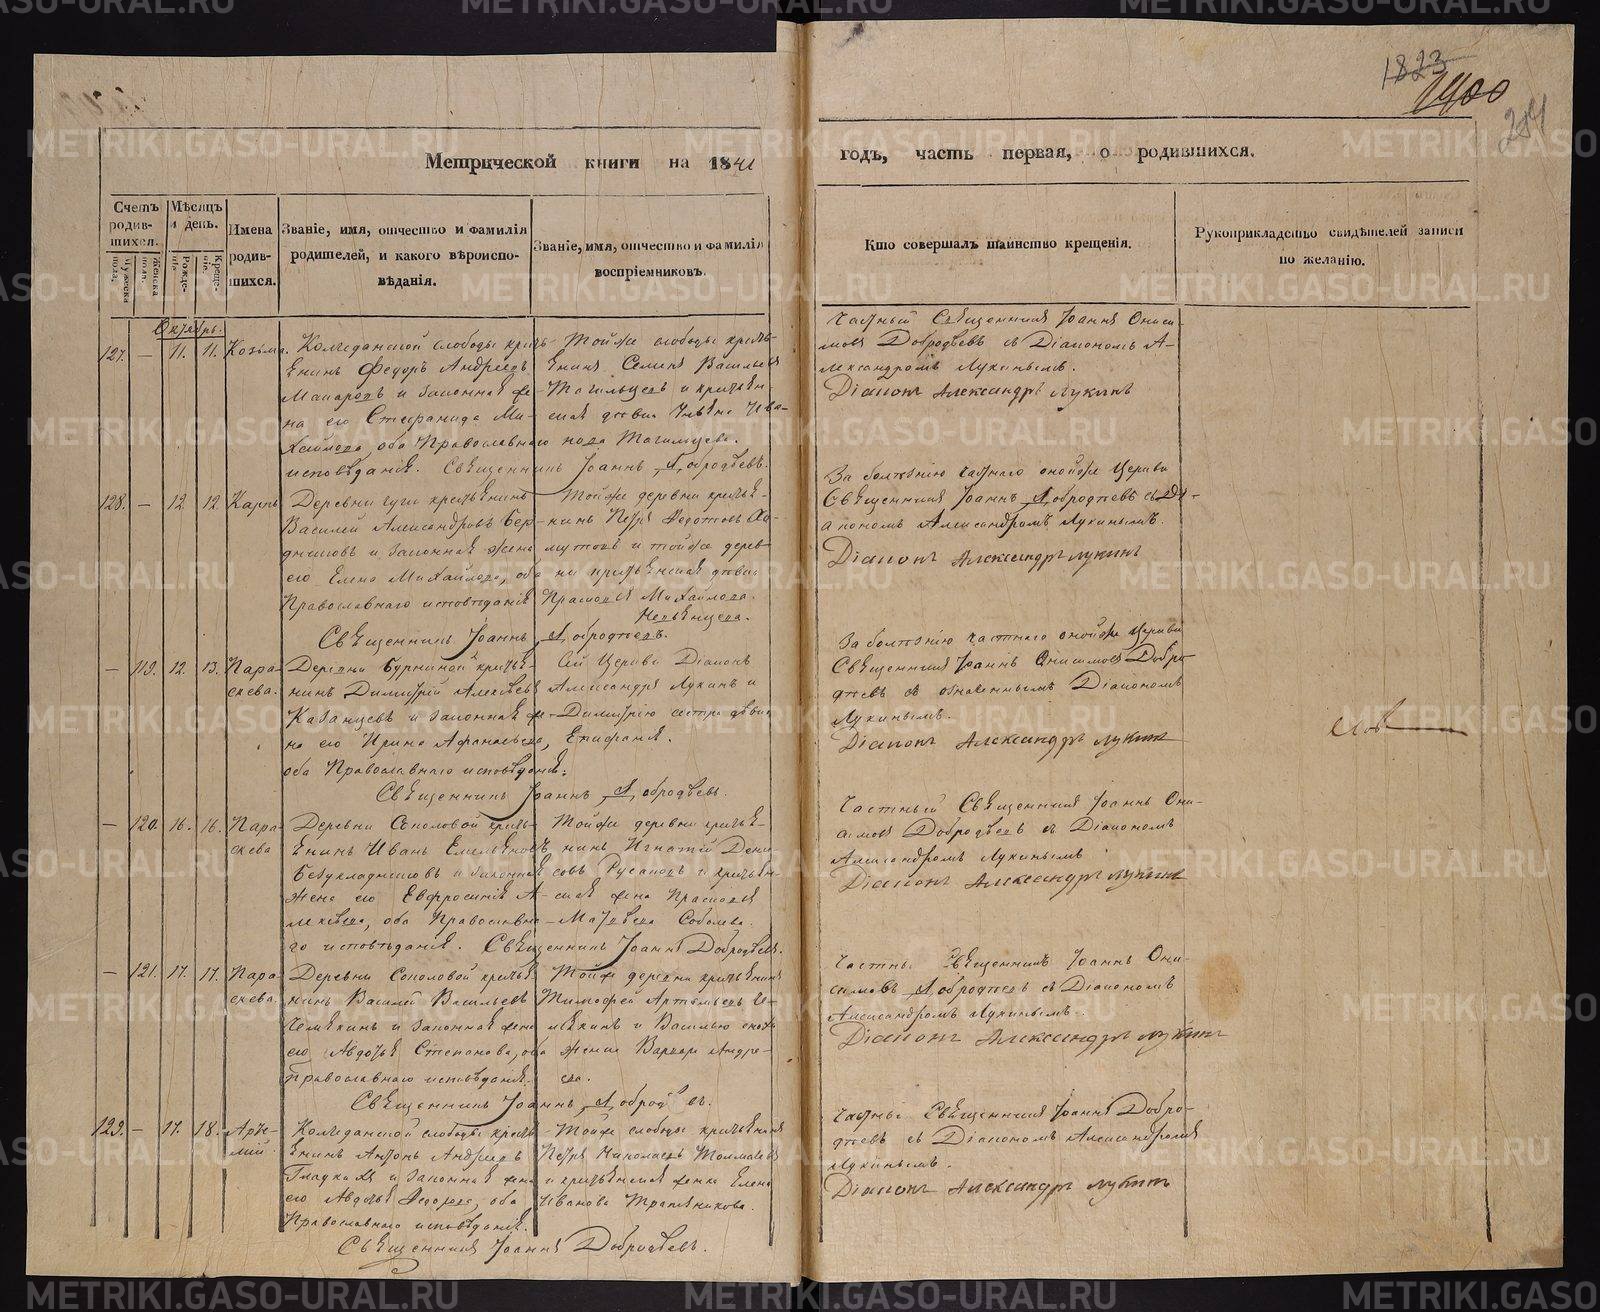 1823
1400
204
Метрической книги на 1841
годъ, часть первая, о родившихся.
Счетъ родив- шихся.
Мѣсяцъ и день.
Имена родив- шихся.
Званіе, имя, отчество и фамилія родителей, и какого вѣроиспо- вѣданія.
Званіе, имя, отчество и фамилія воспріемниковъ.
Кто совершалъ таинство крещенія.
Рукоприкладство свидѣтелей записи по желанію.
Мужеска пола.
Женска пола.
Рожде- нія.
Креще- нія.
Октябрь.
127. — 11. 11. Козьма.
Колчеданской слободы кресть-
янинъ Федоръ Андреевъ
Макаровъ и законная же-
на его Стефанида Ми-
хайлова, оба Православнаго
исповѣданія. Священникъ Іоаннъ Добродѣевъ.
Тойже слободы кресть-
янинъ Семенъ Васильевъ
Тагильцевъ и крестьян-
ская девка Ива-
нова Тагильцева.
Частный Священникъ Іоаннъ Ониси-
мовъ Добродѣевъ съ Діакономъ А-
лександромъ Лукинымъ.
Діаконъ Александръ Лукинъ
128. — 12. 12. Карпъ
Деревни крестьянинъ
Василей Александровъ Бер-
дниковъ и законная жена
его Елена Михайлова, оба
Православнаго исповѣданія
Священникъ Іоаннъ Добродѣевъ.
Тойже деревни крестья-
нинъ Петръ Федотовъ Хо-
мутовъ и тойже дерев-
ни крестьянская девка
Прасковья Михайлова
За болѣзнію частнаго онойже Церкви
Священникъ Іоаннъ Добродѣевъ съ Ді-
акономъ Александромъ Лукинымъ.
Діаконъ Александръ Лукинъ
— 119. 12. 13. Пара-
скева.
Деревни Бурниной крестья-
нинъ Димитрій Алексѣевъ
Казанцевъ и законная же-
на его Ирина Афанасьева,
оба Православнаго исповѣданія.
Священникъ Іоаннъ Добродѣевъ.
Сей Церкви Діаконъ
Александръ Лукинъ и
Димитрію сестра девка
Епифанія.
За болѣзнію частнаго онойже Церкви
Священникъ Іоаннъ Онисимовъ Добро-
дѣевъ съ означеннымъ Діакономъ
Лукинымъ.
Діаконъ Александръ Лукинъ
— 120. 16. 16. Пара-
скева
Деревни Соколовой кресть-
янинъ Иванъ Емельяновъ
Безукладниковъ и законная
жена его Евфросинія А-
лексѣева, оба Православна-
го исповѣданія. Священникъ Іоаннъ Добродѣевъ.
Тойже деревни крестья-
нинъ Игнатій Дени-
совъ Русаковъ и крестьян-
ская жена Прасковья
Матвѣева Соболева.
Частный Священникъ Іоаннъ Они-
симовъ Добродѣевъ съ Діакономъ
Александромъ Лукинымъ
Діаконъ Александръ Лукинъ
— 121. 17. 17. Пара-
скева.
Деревни Соколовой крестья-
нинъ Василей Васильевъ
Чемякинъ и законная жена
его Авдотья Степанова, оба
Православнаго исповѣданія.
Священникъ Іоаннъ Добродѣевъ.
Тойже деревни крестьянинъ
Тимофей Артемьевъ Че-
мякинъ и Василью
жена Варвара Андре-
ева.
Частный Священникъ Іоаннъ Они-
симовъ Добродѣевъ съ Діакономъ
Александромъ Лукинымъ.
Діаконъ Александръ Лукинъ
129. — 17. 18. Арте-
мій.
Колчеданской слободы кресть-
янинъ Антонъ Андреевъ
Гладкихъ и законная жена
его Авдотья Федорова, оба
Православнаго исповѣданія.
Священникъ Іоаннъ Добродѣевъ.
Тойже слободы крестьянинъ
Петръ Николаевъ Толмачевъ
и крестьянская жена Елена
Иванова Трапезникова.
Частный Священникъ Іоаннъ Добро-
дѣевъ съ Діакономъ Александромъ
Лукинымъ.
Діаконъ Александръ Лукинъ
METRIKI.GASO-URAL.RU